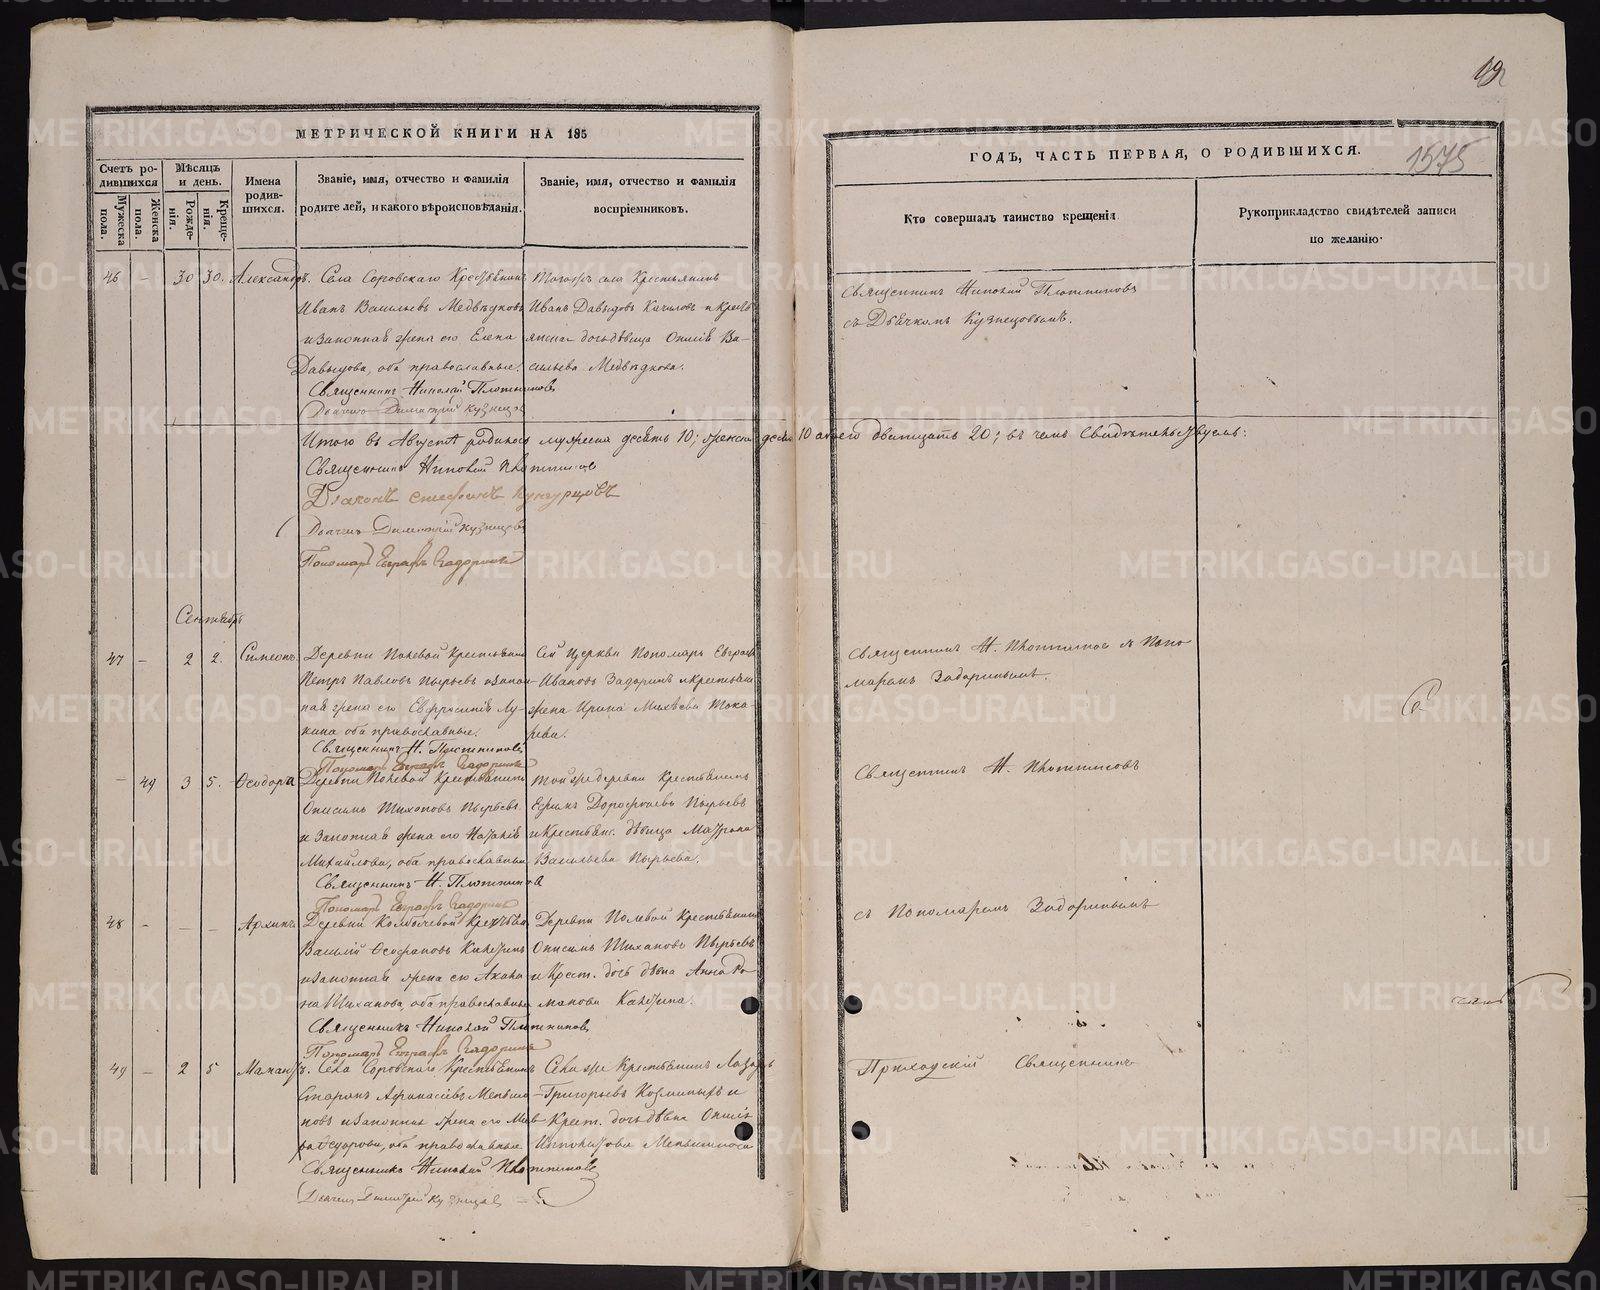 МЕТРИЧЕСКОЙ КНИГИ НА 185
Счетъ родившихся
Мужеска пола.
Женска пола.
Мѣсяцъ и день.
Рожденія.
Крещенія.
Имена родившихся.
Званіе, имя, отчество и фамилія родителей, и какого вѣроисповѣданія.
Званіе, имя, отчество и фамилія воспріемниковъ.
46 — 30 30. Александръ. Села Соровскаго Крестьянинъ Тогожъ села Крестьянинъ
Иванъ Васильевъ Медвѣдковъ Иванъ Давыдовъ и Кресть
и законная жена его Елена янская дочь дѣвица Ва-
Давыдова, оба православные. сильева Медвѣдкова.
Священникъ Николай Плотниковъ
Дьячекъ Димитрій Кузнецовъ
Итого въ Августѣ родилось мужеска десять 10; женска десять 10 а всего двадцать 20; въ чемъ Свидѣтельствуемъ:
Священникъ Николай Плотниковъ
Діаконъ Стефанъ
Дьячекъ Димитрій Кузнецовъ
Пономарь Евграфъ Задоринъ
Сентябрь
47 — 2 2. Симеонъ. Деревни Полевой Крестьянинъ Сей Церкви Пономарь Евграфъ
Петръ Павловъ Пырьевъ и закон- Ивановъ Задоринъ и крестьян
ная жена его Евфросинія Лу- жена Ирина Михѣева Тока-
кина оба православные. рева.
Священникъ Н. Плотниковъ
Пономарь Евграфъ Задоринъ
— 49 3 5. Ѳеодора Деревни Полевой Крестьянинъ Той же деревни Крестьянинъ
Онисимъ Тихоновъ Пырьевъ Ефимъ Дорофеевъ Пырьевъ
и Законная жена его Наталія и Крестьянс. дѣвица Матрона
Михайлова, оба православные Васильева Пырьева.
Священникъ Н. Плотниковъ
Пономарь Евграфъ Задоринъ
48 — — — Архипъ. Деревни Крестьян. Деревни Полевой Крестьянинъ
Василій Ѳеофановъ Онисимъ Тихановъ Пырьевъ
и законная жена его и Крест. дочь дѣвка Анна Ро-
Тиханова, оба православные манова
Священникъ Николай Плотниковъ
Пономарь Евграфъ Задоринъ
49 — 2 5 Мамантъ. Села Соровскаго Крестьянинъ Села же Крестьянинъ Лазарь
Афанасіевъ Меньши- Григорьевъ и
ковъ и Законная жена его Мав- Крест. дочь дѣвка
ра Ѳедорова, оба православные Меньшикова
Священникъ Николай Плотниковъ
Дьячекъ Димитрій Кузнецовъ
ГОДЪ, ЧАСТЬ ПЕРВАЯ, О РОДИВШИХСЯ.
1575
Кто совершалъ таинство крещенія
Рукоприкладство свидѣтелей записи по желанію.
Священникъ Николай Плотниковъ
съ Дьячкомъ Кузнецовымъ.
Священникъ Н. Плотниковъ и Поно-
маремъ Задоринымъ.
Священникъ Н. Плотниковъ
съ Пономаремъ Задоринымъ
Приходскій Священникъ
METRIKI.GASO-URAL.RU